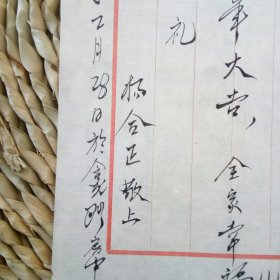 年大吉，全家幸福
礼
杨合正敬上
2月28日於金陵